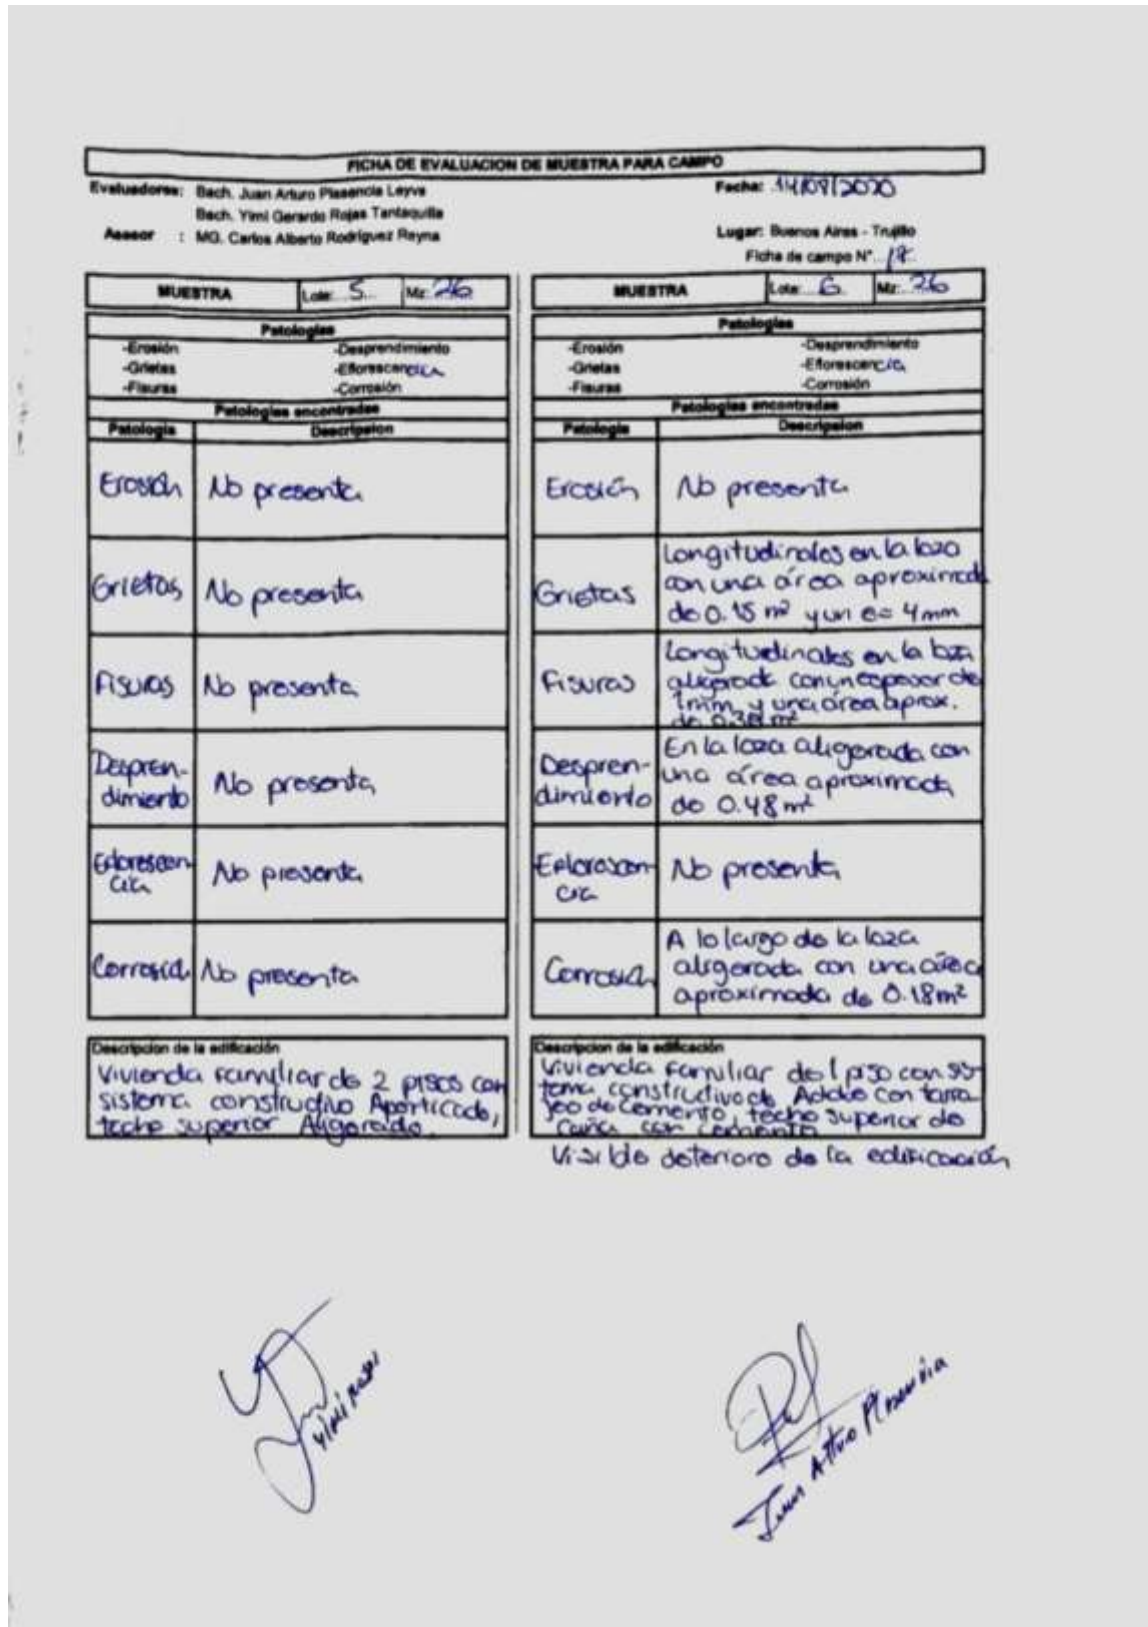 FICHA DE EVALUACION DE MUESTRA PARA CAMPO
Evaluadores: Bach. Juan Arturo Plasencia Leyva
Fecha: 14/08/2020
Bach. Yimi Gerardo Rojas Tantaquilla
Asesor : MG. Carlos Alberto Rodríguez Reyna
Lugar: Buenos Aires - Trujillo
Ficha de campo N° 18
MUESTRA Lote: 5 Mz: 26
Patologías
-Erosión -Desprendimiento
-Grietas -Eflorescencia
-Fisuras -Corrosión
Patologías encontradas
Patología Descripsion
Erosión No presenta
Grietas No presenta
Fisuras No presenta
Despren-
dimiento
No presenta
Eflorescen-
cia
No presenta
Corrosión No presenta
Descripcion de la edificación
Vivienda familiar de 2 pisos con
sistema constructivo Aporticado,
techo superior Aligerado.
MUESTRA Lote: 6 Mz: 26
Patologías
-Erosión -Desprendimiento
-Grietas -Eflorescencia
-Fisuras -Corrosión
Patologías encontradas
Patología Descripsion
Erosión No presenta
Grietas
Longitudinales en la loza
con una área aproximada
de 0.15 m² y un e= 4mm
Fisuras
Longitudinales en la loza
aligerada con un espesor de
1mm y una área aprox.
de m²
Despren-
dimiento
En la loza aligerada con
una área aproximada
de 0.48m²
Eflorescen-
cia
No presenta
Corrosión
A lo largo de la loza
aligerada con una área
aproximada de 0.18m²
Descripcion de la edificación
Vivienda familiar de 1 piso con sis-
tema constructivo de Adobe con tarra
jeo de Cemento, techo superior de
caña con cemento
Visible deterioro de la edificación
Yimi Rojas
Juan Arturo Plasencia